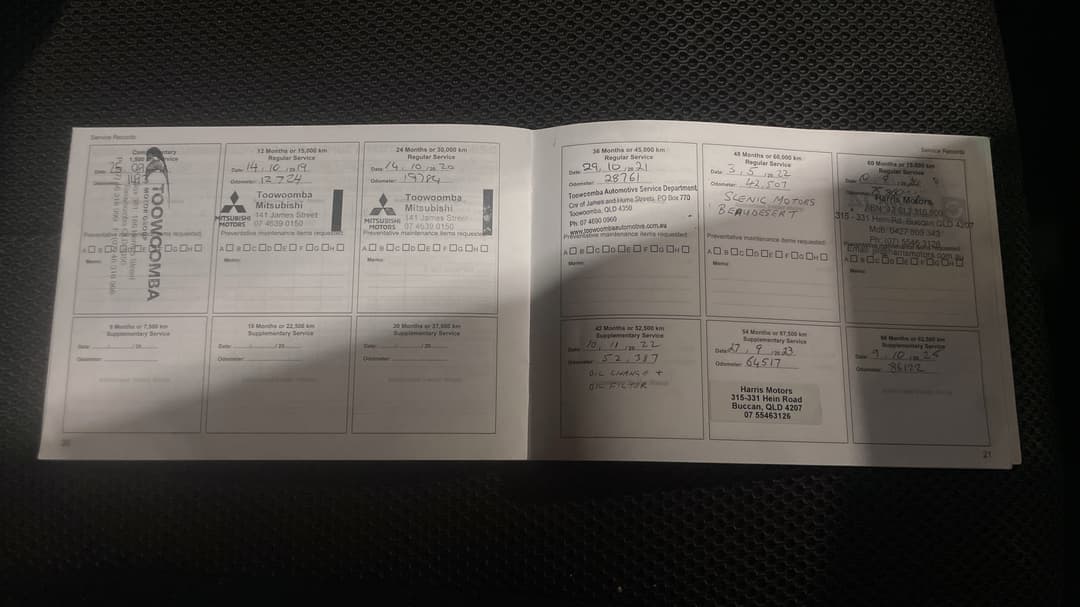 Service Records
1,500
TOOWOOMBA
Memo:
12 Months or 15,000 km
Regular Service
Date: 14 . 10 . 2019
Odometer: 12724
MITSUBISHI
MOTORS
Toowoomba
Mitsubishi
141 James Street
07 4639 0150
Preventative maintenance items requested:
A B C D E F G H
Memo:
24 Months or 30,000 km
Regular Service
Date: 14 . 10 . 2020
Odometer: 19784
MITSUBISHI
MOTORS
Toowoomba
Mitsubishi
141 James Street
07 4639 0150
Preventative maintenance items requested:
A B C D E F G H
Memo:
9 Months or 7,500 km
Supplementary Service
Date: / 20
Odometer:
18 Months or 22,500 km
Supplementary Service
Date: / 20
Odometer:
30 Months or 37,500 km
Supplementary Service
Date: / 20
Odometer:
20
Service Records
36 Months or 45,000 km
Regular Service
Date: 29 . 10 . 2021
Odometer: 28761
Toowoomba Automotive Service Department
Cnr of James and Streets, PO Box 770
Toowoomba, QLD 4350
Ph: 07 4690 0960
www.toowoombaautomotive.com.au
Preventative maintenance items requested:
A B C D E F G H
Memo:
48 Months or 60,000 km
Regular Service
Date: 3 . 5 . 2022
Odometer: 42,507
SCENIC MOTORS
BEAUDESERT
Preventative maintenance items requested:
A B C D E F G H
Memo:
60 Months or 75,000 km
Regular Service
Harris Motors
315 - 331 Hein Rd, Buccan QLD 4207
Ph: (07) 5546 3126
A B C D E F G H
Memo:
42 Months or 52,500 km
Supplementary Service
Date: 10 . 11 . 2022
Odometer: 52,387
OIL CHANGE +
OIL FILTER
54 Months or 67,500 km
Supplementary Service
Date: 27 . 9 . 2023
Odometer: 64517
Harris Motors
315-331 Hein Road
Buccan, QLD 4207
07 55463126
Supplementary Service
Date: 9 . 10 . 2025
Odometer: 86122
21